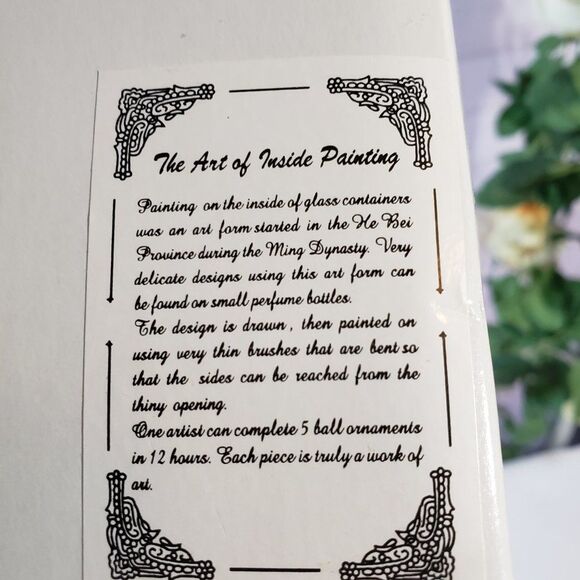 The Art of Inside Painting
Painting on the inside of glass containers
was an art form started in the He Bei
Province during the Ming Dynasty. Very
delicate designs using this art form can
be found on small perfume bottles.
The design is drawn, then painted on
using very thin brushes that are bent so
that the sides can be reached from the
thiny opening.
One artist can complete 5 ball ornaments
in 12 hours. Each piece is truly a work of
art.